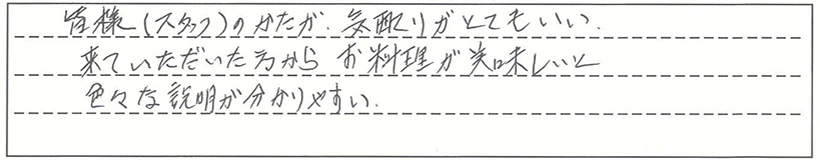 皆様(スタッフ)のかたが、気配りがとてもいい.
来ていただいた方から お料理が美味しいと
色々な説明が分かりやすい.